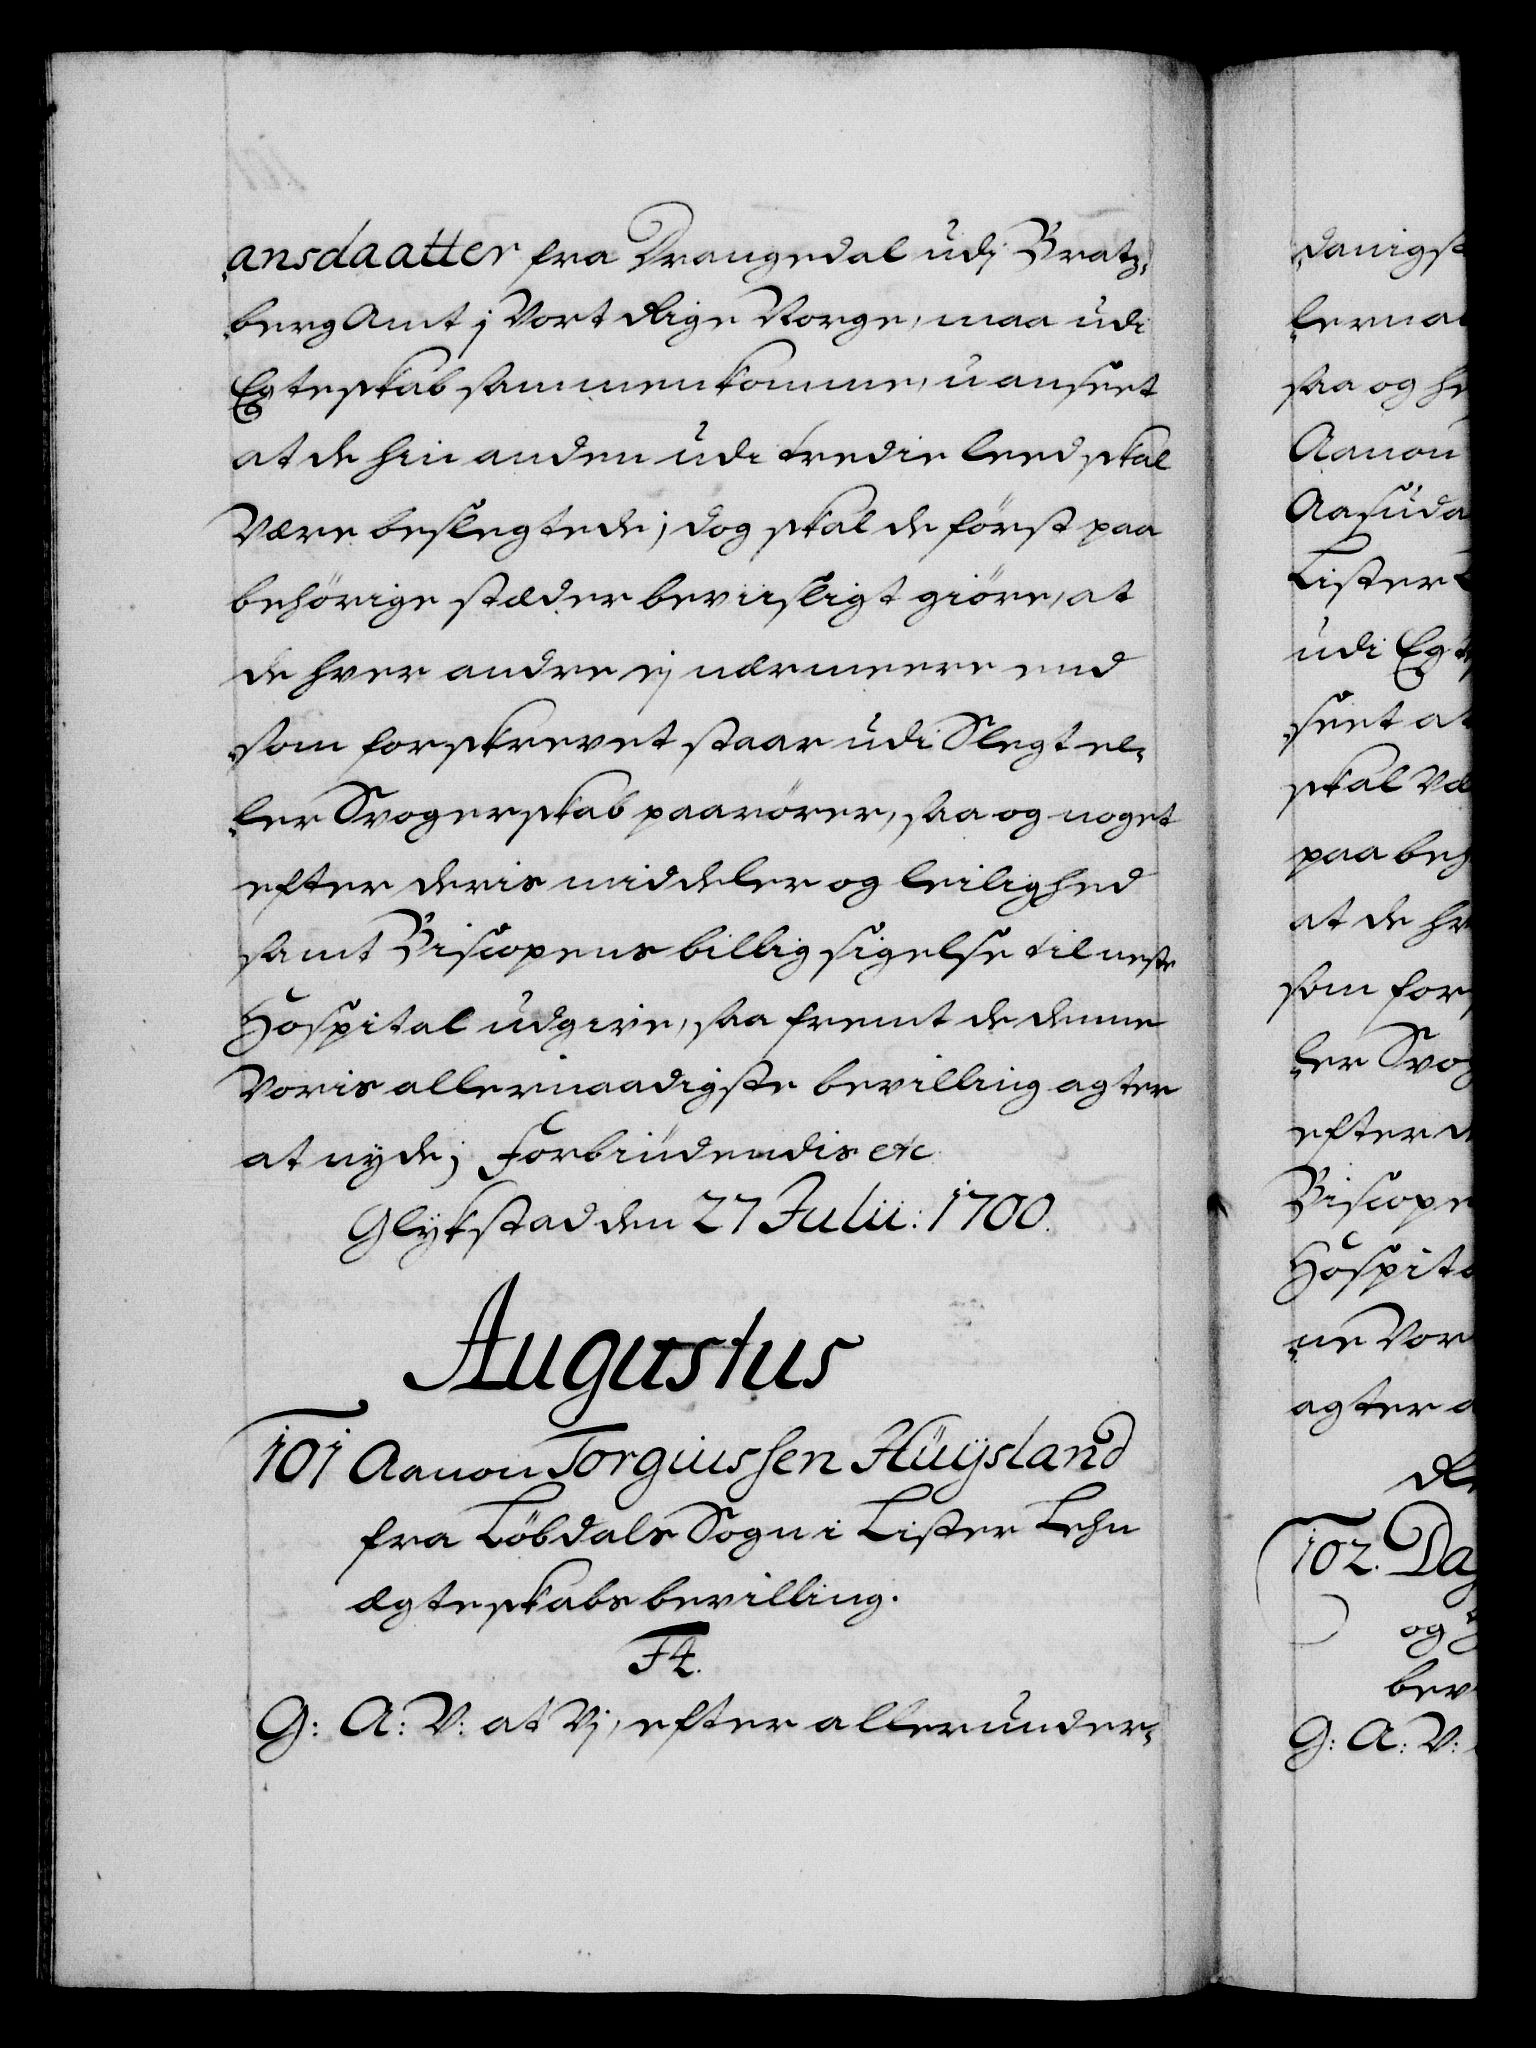 ansdaatter fra Drangedal udj Bratz-
berg Amt j Vort Rige Norge, maa udi
Egteskab sammenkomme, uanseet
at de hin anden udi tredie leed skal
være beslegtede; dog skal de först paa
behörige stæder beviisligt giöre, at
de hver andre ej nærmeere end
som forskrevet staar udi Slegt el-
ler Svogerskab paarörer, saa og noget
efter deris middeler og leilighed
samt Biscopens billig sigelse til neste
Hospital udgive, saa fremt de denne
Voris allernaadigste bevilling agter
at nyde; Forbiudendis etc
Glykstad den 27 Julii: 1700.
Augustus
101 Aanon Torgiussen Hüysland
fra Löbdals Sogn i Lister Lehn
ægteskabs bevilling.
F4.
G: A: V: at Vj, efter allerunder-
danigst
lernaa
saa og he
Aanon
Aasüda
Lister L
udi Egte
seet at
skal Væ
paa beh
at de hv
som for
ler Svog
efter d
Biscope
Hospita
ne Vor
agter a
102. Dag
og
bev
G: A: V: